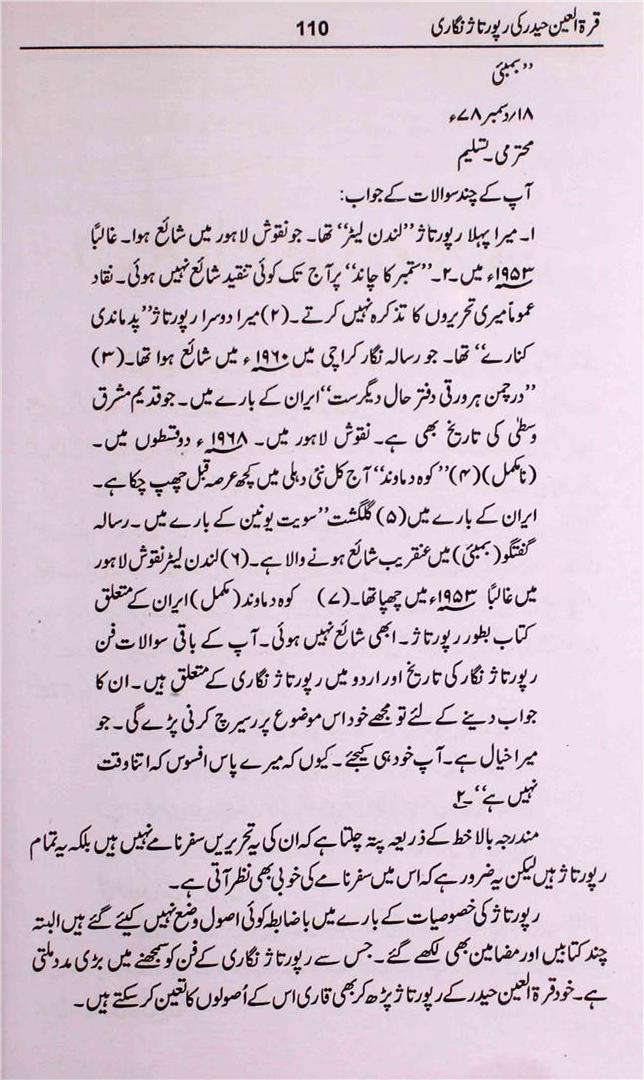 قرۃ العین حیدر کی رپورتاژ نگاری 110
”بمبئی
۱۸/دسمبر ۷۸ء
محترمی۔ تسلیم
آپ کے چند سوالات کے جواب:
۱۔ میرا پہلا رپورتاژ ”لندن لیٹر“ تھا۔ جو نقوش لاہور میں شائع ہوا۔ غالباً
۱۹۵۳ء میں۔ ۲۔ ”ستمبر کا چاند“ پر آج تک کوئی تنقید شائع نہیں ہوئی۔ نقاد
عموماً میری تحریروں کا تذکرہ نہیں کرتے۔ (۲) میرا دوسرا رپورتاژ ”پدما ندی
کنارے“ تھا۔ جو رسالہ نگار کراچی میں ۱۹۶۰ء میں شائع ہوا تھا۔ (۳)
”درچمن ہرورقی دفتر حال دیگرست“ ایران کے بارے میں۔ جو قدیم مشرق
وسطیٰ کی تاریخ بھی ہے۔ نقوش لاہور میں۔ ۱۹۶۸ء دو قسطوں میں۔
(نامکمل) (۴) ”کوہ دماوند“ آج کل نئی دہلی میں کچھ عرصہ قبل چھپ چکا ہے۔
ایران کے بارے میں (۵) گلگشت“ سویت یونین کے بارے میں۔ رسالہ
گفتگو (بمبئی) میں عنقریب شائع ہونے والا ہے۔ (۶) لندن لیٹر نقوش لاہور
میں غالباً ۱۹۵۳ء میں چھپا تھا۔ (۷) کوہ دماوند (مکمل) ایران کے متعلق
کتاب بطور رپورتاژ۔ ابھی شائع نہیں ہوئی۔ آپ کے باقی سوالات فن
رپورتاژ نگار کی تاریخ اور اردو میں رپورتاژ نگاری کے متعلق ہیں۔ ان کا
جواب دینے کے لئے تو مجھے خود اس موضوع پر ریسرچ کرنی پڑے گی۔ جو
میرا خیال ہے۔ آپ خود ہی کیجئے۔ کیوں کہ میرے پاس افسوس کہ اتنا وقت
نہیں ہے“۔ ۲
مندرجہ بالا خط کے ذریعہ پتہ چلتا ہے کہ ان کی یہ تحریریں سفر نامے نہیں ہیں بلکہ یہ تمام
رپورتاژ ہیں لیکن یہ ضرور ہے کہ اس میں سفر نامے کی خوبی بھی نظر آتی ہے۔
رپورتاژ کی خصوصیات کے بارے میں باضابطہ کوئی اصول وضع نہیں کیئے گئے ہیں البتہ
چند کتابیں اور مضامین بھی لکھے گئے۔ جس سے رپورتاژ نگاری کے فن کو سمجھنے میں بڑی مدد ملتی
ہے۔ خود قرۃ العین حیدر کے رپورتاژ پڑھ کر بھی قاری اس کے اُصولوں کا تعین کر سکتے ہیں۔